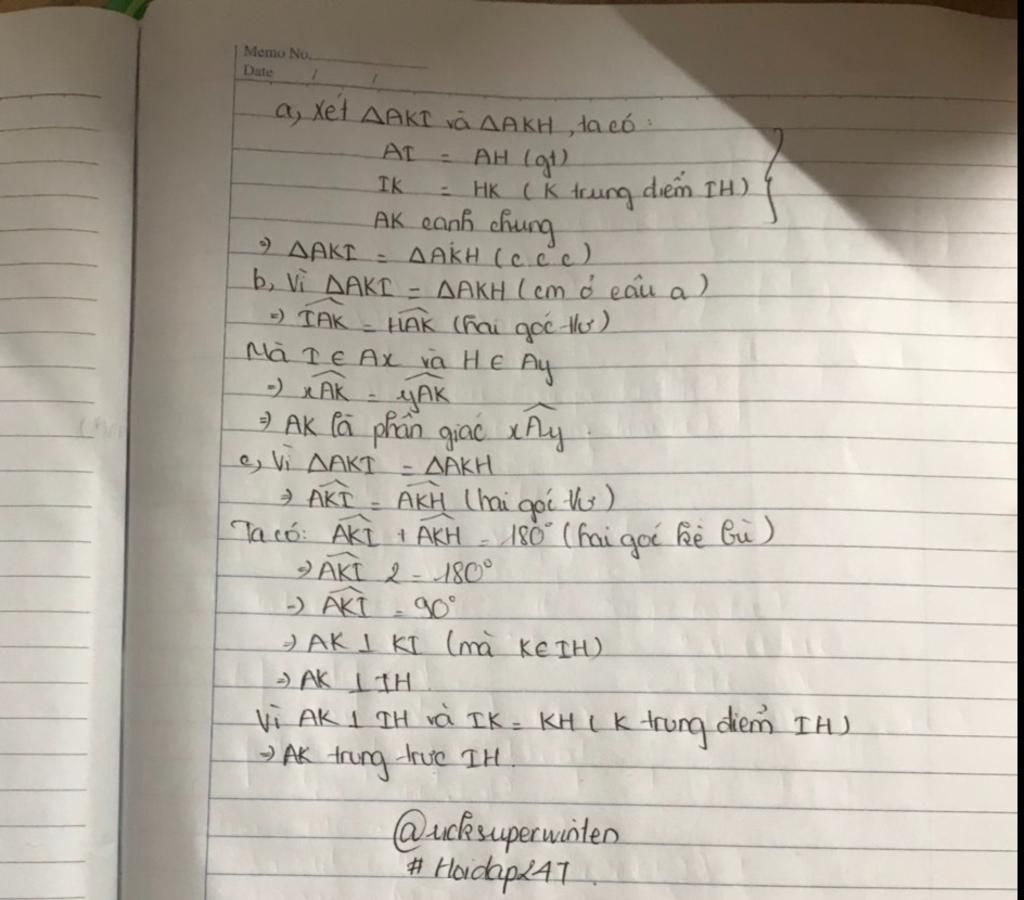 Memo No.
Date / /
a, xét ΔAKI và ΔAKH, ta có:
AI = AH (gt)
IK = HK (K trung điểm IH)
AK cạnh chung
⇒ ΔAKI = ΔAKH (c c c)
b, Vì ΔAKI = ΔAKH (cm ở câu a)
⇒ \widehat{IAK} = \widehat{HAK} (hai góc tư)
Mà I ∈ Ax và H ∈ Ay
⇒ \widehat{xAK} = \widehat{yAK}
⇒ AK là phân giác \widehat{xAy}.
c, Vì ΔAKI = ΔAKH
⇒ \widehat{AKI} = \widehat{AKH} (hai góc tư)
Ta có: \widehat{AKI} + \widehat{AKH} = 180° (hai góc kề bù)
⇒ \widehat{AKI} 2 = 180°
⇒ \widehat{AKI} = 90°
⇒ AK ⊥ KI (mà K ∈ IH)
⇒ AK ⊥ IH
Vì AK ⊥ IH và IK = KH (K trung điểm IH)
⇒ AK trung trực IH.
@ucksuperwinten
# Hoidap247